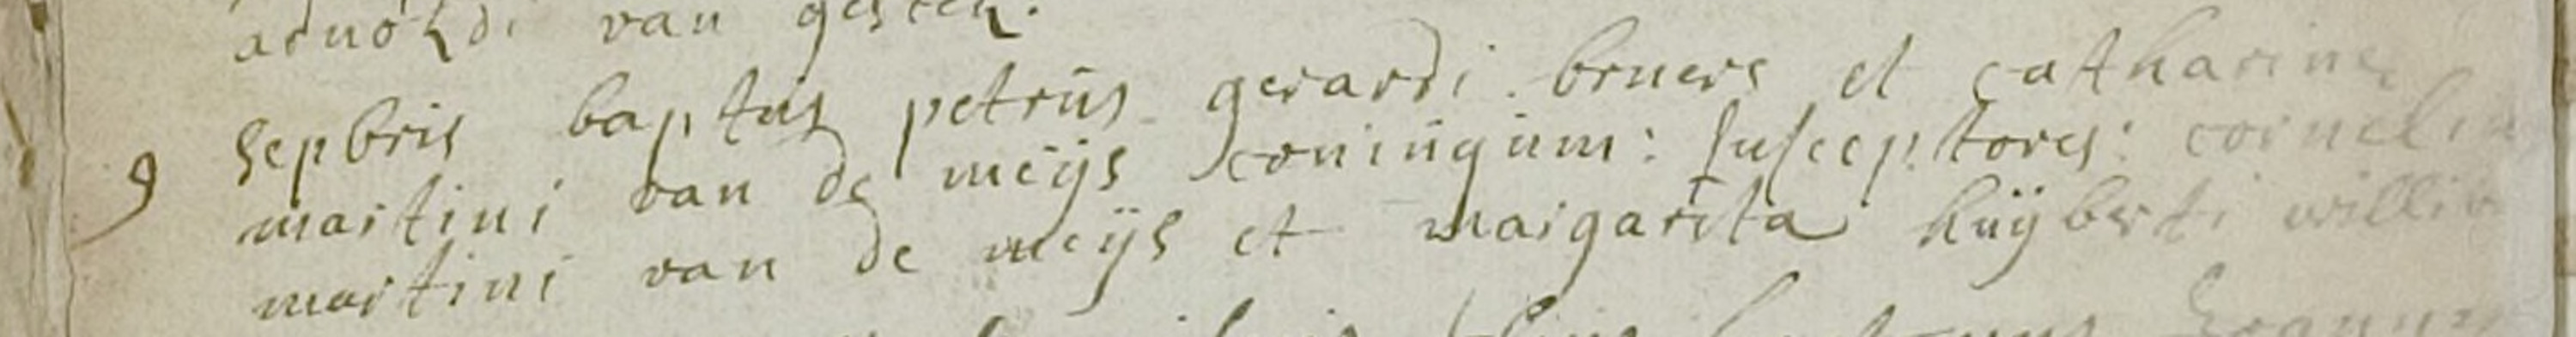 arnoldi van gestel.
9 Sepbris baptus petrus gerardi bruers et catharine
martini van de meijs coniugum: susceptores: cornelius
martini van de meijs et margarita huijberti